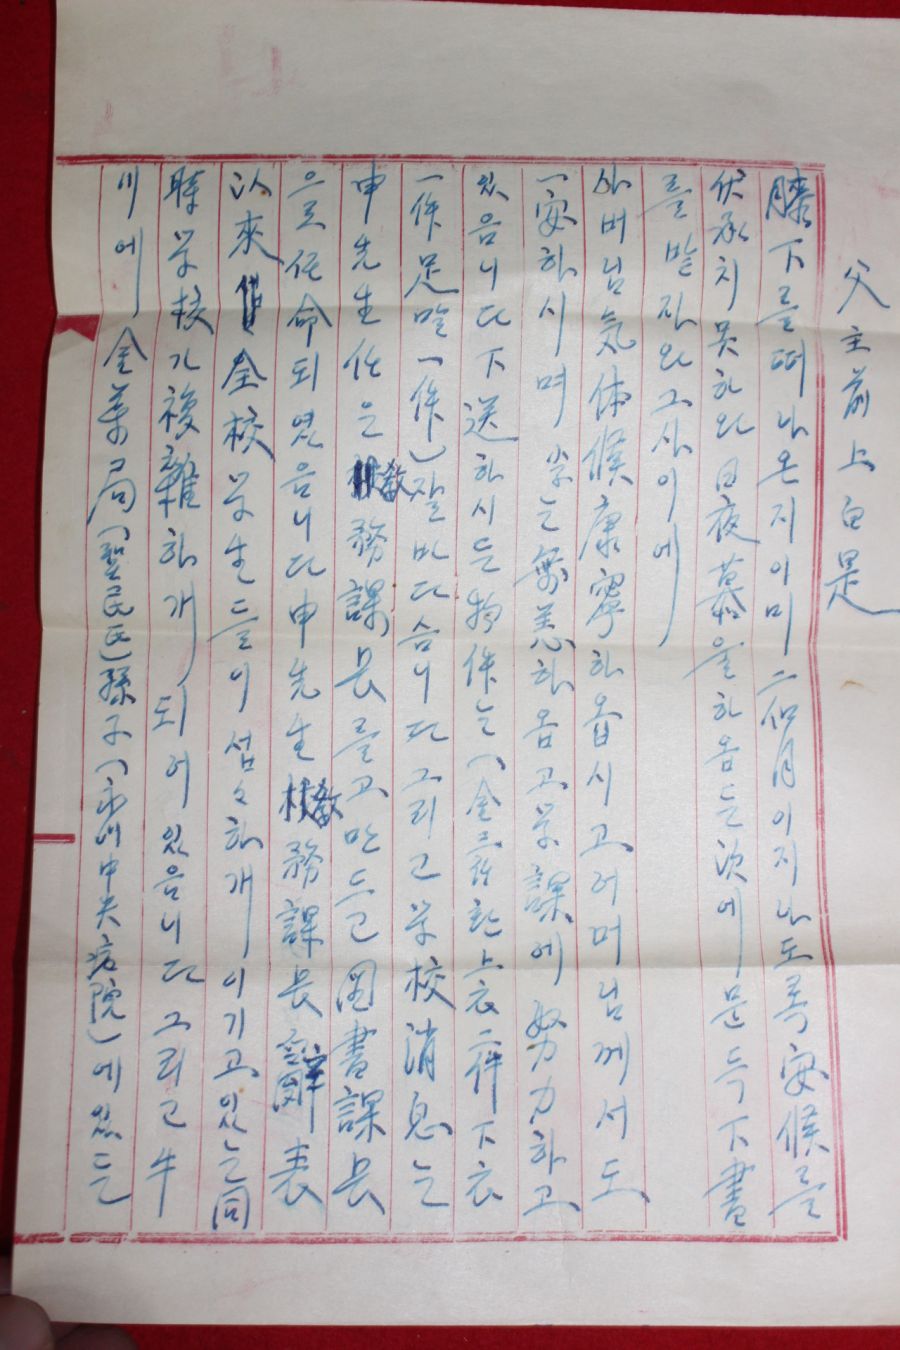 父主前上白是
膝下를떠나온지이미二個月이지나도록安候를
伏承치못하와日夜慕鬱하옴든次에문득下書
를받자와그사이에
아버님気体候康寧하옵시고어머님께서도
一安하시며 学課에努力하고
있읍니다下送하시든物件는(金 上衣二件下衣
一件足 一件)잘받았습니다그리고学校消息는
申先生 은 教務課長를고만두고図書課長
으로任命되였읍니다申先生 教務課長辞表
以來 全校学生들이섭々하개이기고있는同
時学校가複雑하개 되어있읍니다그리고牛
川에 金薬局 孫子(永川中央病院)에있는